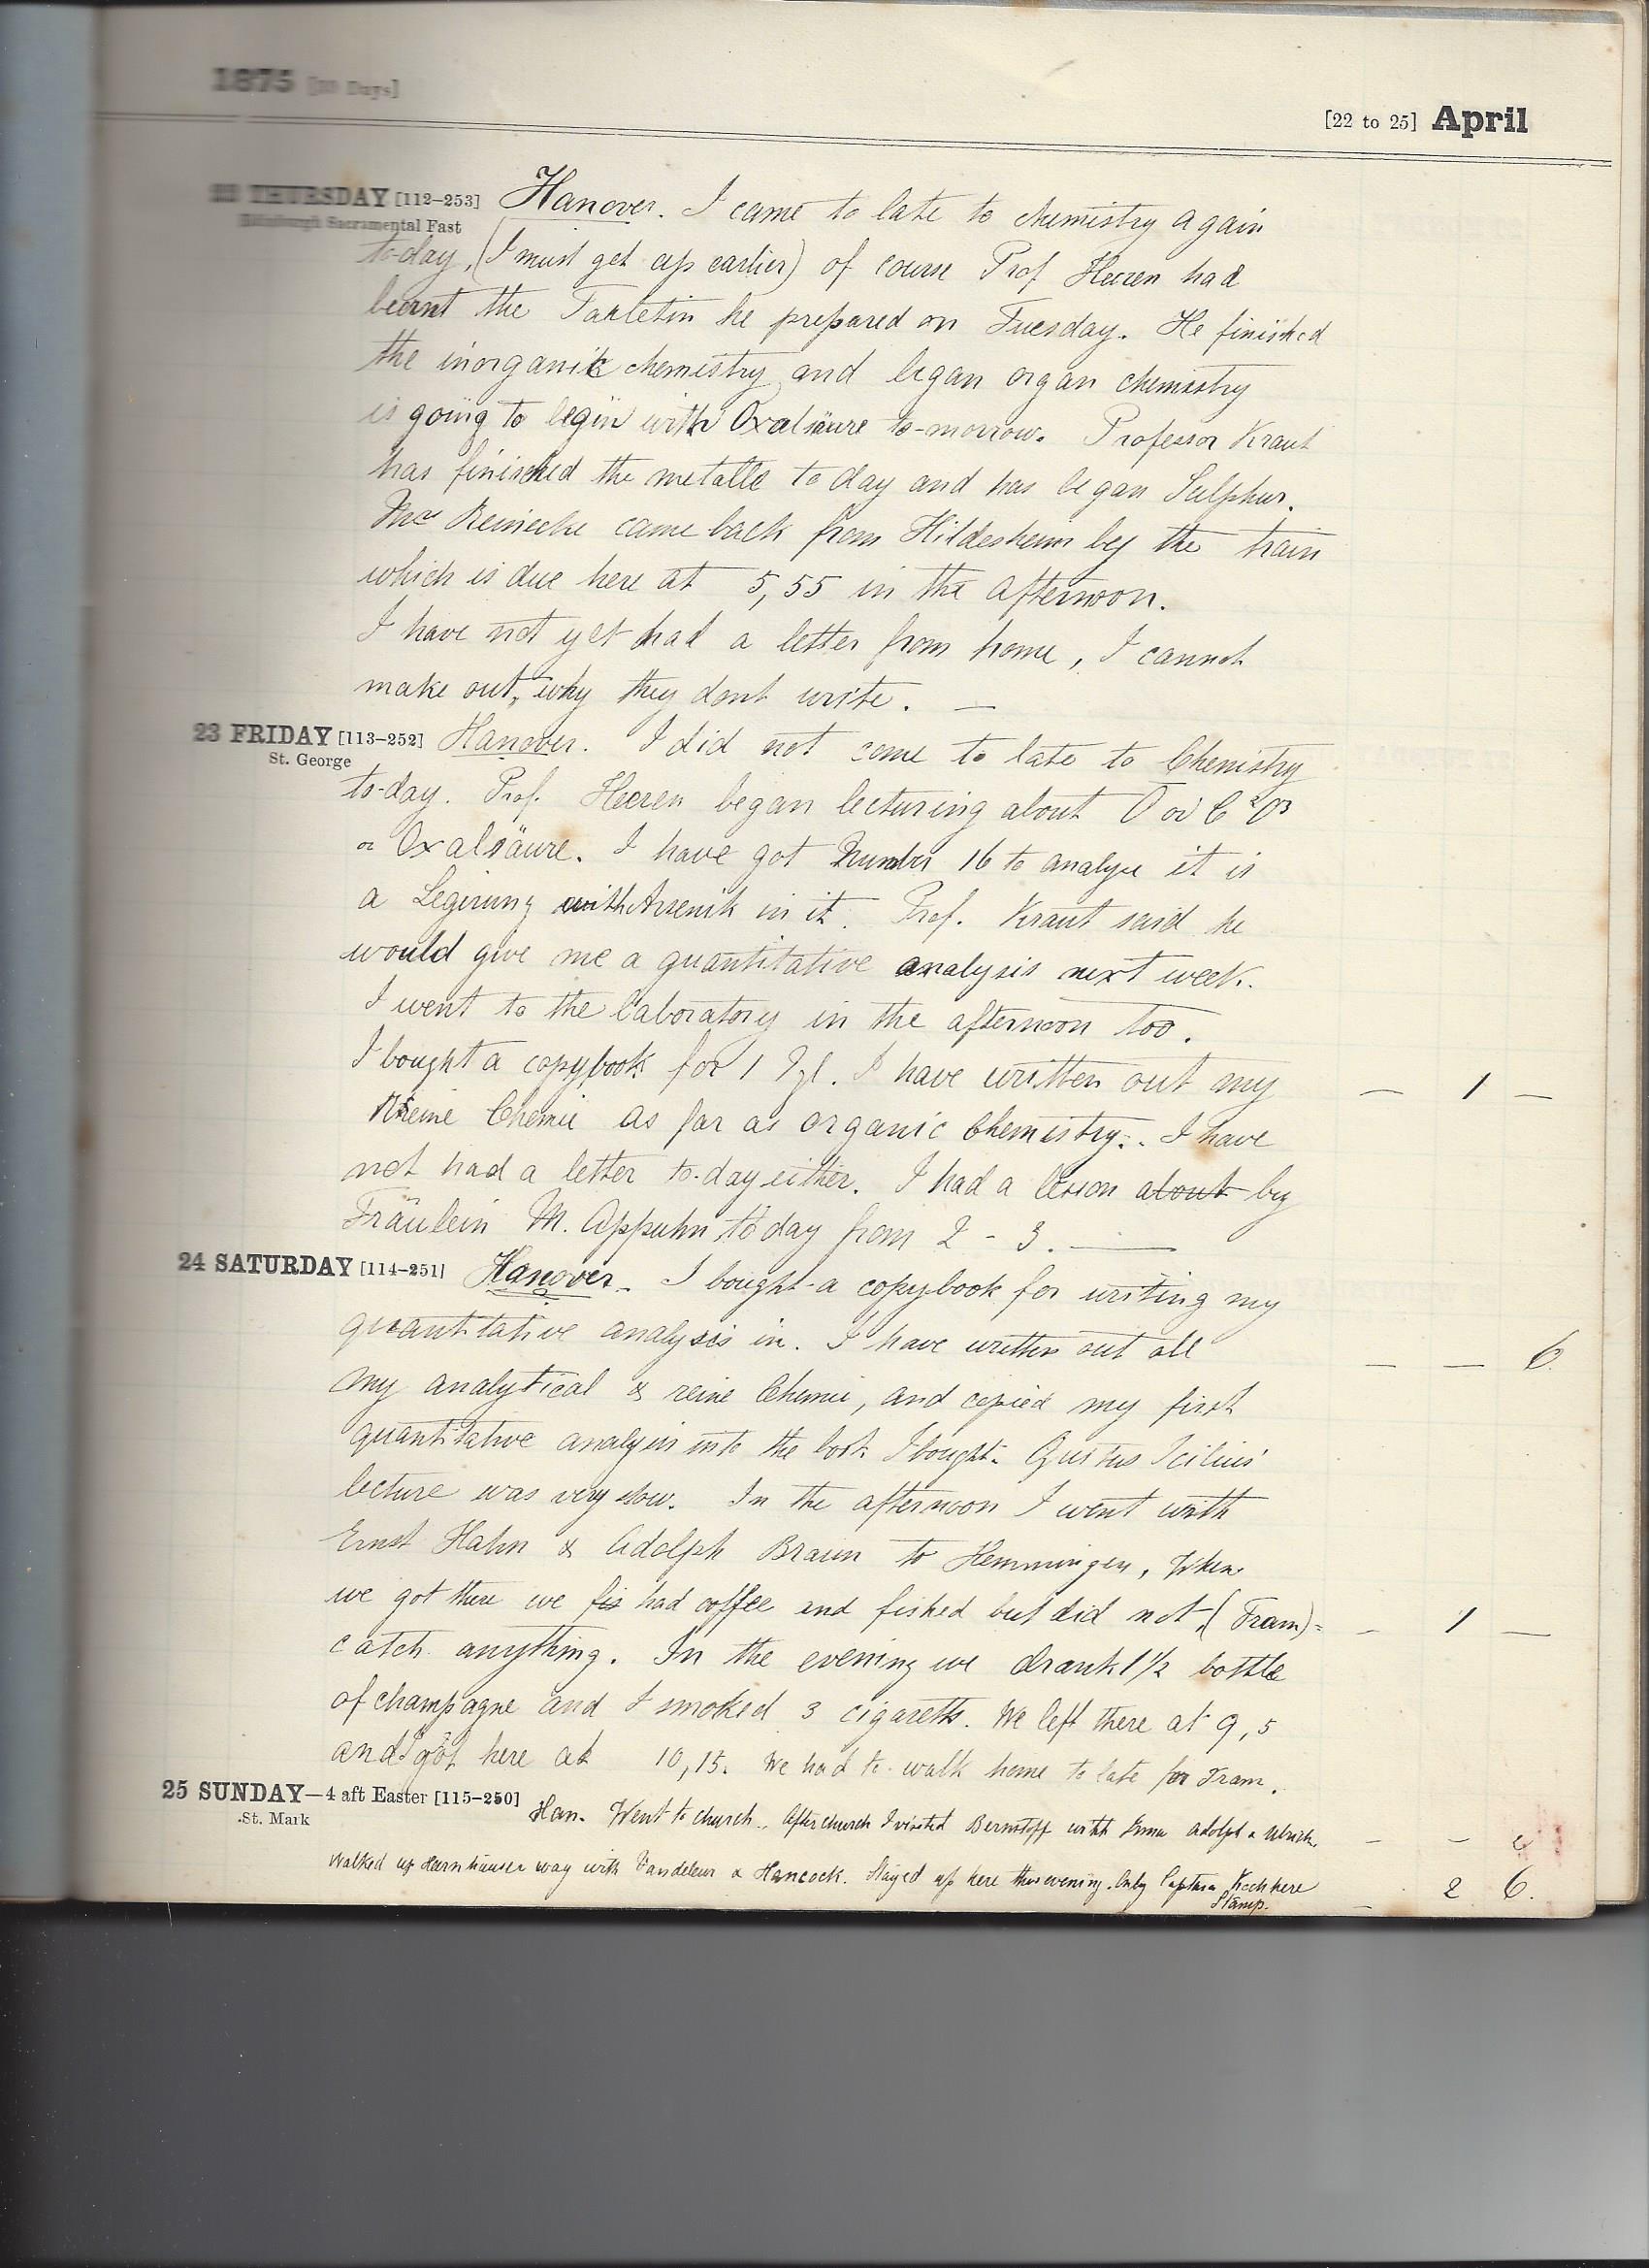 1875 [30 Days]
[22 to 25] April
22 THURSDAY [112–253] Hanover. I came to late to chemistry again
Edinburgh Sacramental Fast
to-day, (I must get up earlier) of course Prof Heeren had
burnt the Tarletin he prepared on Tuesday. He finished
the inorganic chemistry and began organ chemistry
is going to begin with Oxalsäure to-morrow. Professor Kraut
has finished the metalle to day and has began Sulphur.
Mrs Reinecke came back from Hildesheim by the train
which is due here at 5,55 in the afternoon.
I have not yet had a letter from home, I cannot
make out, why they dont write. —
23 FRIDAY [113–252] Hanover. I did not come to late to Chemistry
St. George
to-day. Prof. Heeren began lecturing about O od C²O³
or Oxalsäure. I have got Number 16 to analyse it is
a Legirung with Arsenik in it. Prof. Kraut said he
would give me a quantitative analysis next week.
I went to the laboratory in the afternoon too.
I bought a copybook for 1 Sgl. I have written out my — 1 —
Reine Chemie as far as organic Chemistry. I have
not had a letter to-day either. I had a lesson about by
Fräulein M. Appuhn to day from 2 - 3. —
24 SATURDAY [114–251] Hanover. I bought a copybook for writing my
quantitative analysis in. I have written out all — — 6.
my analytical & reine Chemie, and copied my first
quantitative analysis into the book I bought. Quintus Icilius'
lecture was very slow. In the afternoon I went with
Ernst Hahn & Adolph Braun to Hemmingen, When
we got there we fis had coffee and fished but did not (Tram) = — 1 —
catch anything. In the evening we drank 1½ bottle
of champagne and I smoked 3 cigaretts. We left there at 9,5
and I got here at 10,15. We had to walk home to late for Tram.
25 SUNDAY—4 aft Easter [115–250] Han. Went to church. After church I visited Bernstoff with Emma Adolph & Ulrich.
St. Mark
Walked up Herrnhäuser way with Vandeleur & Hancock. Stayed up here this evening. Only Captain Koch here
Stamp. — 2 6.